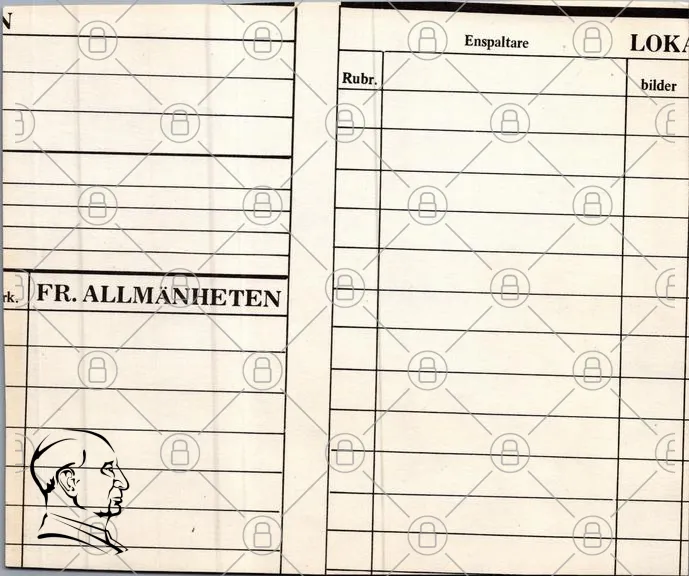 N
rk.
FR. ALLMÄNHETEN
Enspaltare
LOKA
Rubr.
bilder